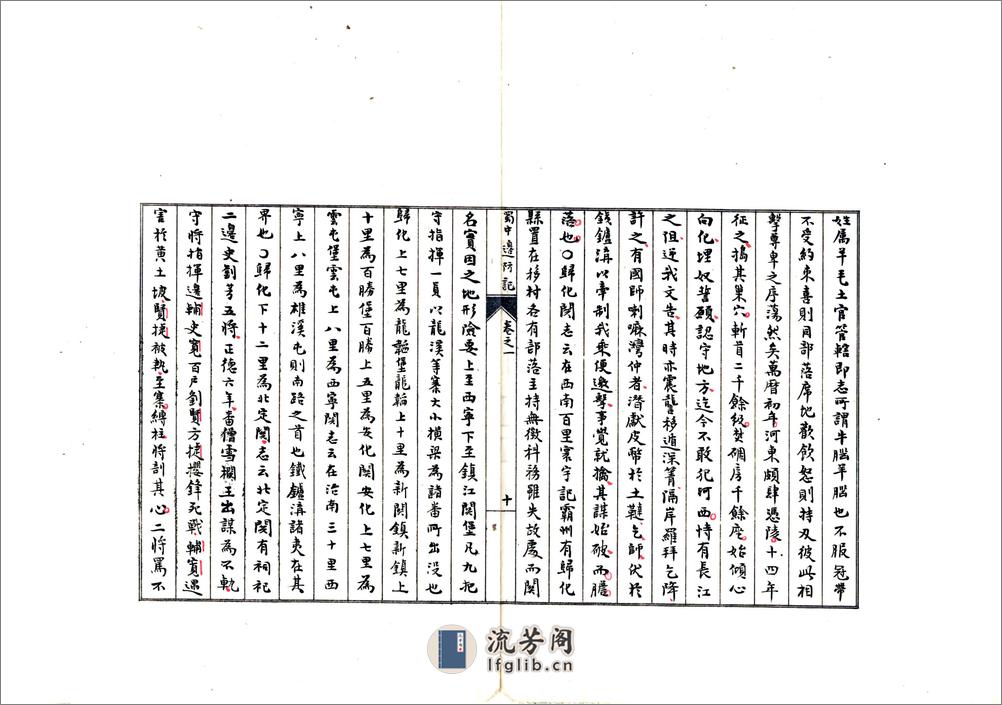 姓属羊毛土官管轄即志所謂牛腦羊腦也不服冠帶
不受約束喜則同部落席地歡飲怒則持刄彼此相
擊尊卑之序蕩然矣萬曆初年河東頗肆憑陵十四年
征之搗其巢穴斬首二千餘級焚碉房千餘座始傾心
向化埋奴誓願認守地方迄今不敢犯河西恃有長江
之阻近我文告其時亦震讋移遁深箐隔岸羅拜乞降
許之有國師喇嘛灣仲者潛獻皮幣於土韃乞師伏於
錢鑪溝以牽制我乘便邀擊事覺就擒其謀始破而膽
落也〇歸化関志云在西南百里寰宇記霸州有歸化
縣置在移村各有部落主持無徵科務雖失故處而関
蜀中邊防記 卷之一 十
名實因之地形險要上至西寧下至鎮江関堡凡九把
守指揮一員以龍溪等寨大小橫梁為諸番所出没也
歸化上七里為龍韜堡龍韜上十里為新関鎮新鎮上
十里為百勝堡百勝上五里為安化関安化上七里為
雲屯堡雲屯上八里為西寧関志云在治南三十里西
寧上八里為雄溪屯則南路之首也鐵鑪溝諸夷在其
界也〇歸化下十二里為北定関志云北定関有祠祀
二邊史劉芳五將正德六年畨僧雪欄王出謀為不軌
守將指揮邊輔史寛百戶劉賢方捷攖鋒死戰輔寛遇
害於黄土坡賢捷被執至寨縛柱將剖其心二將罵不
流芳阁
lfglib.cn